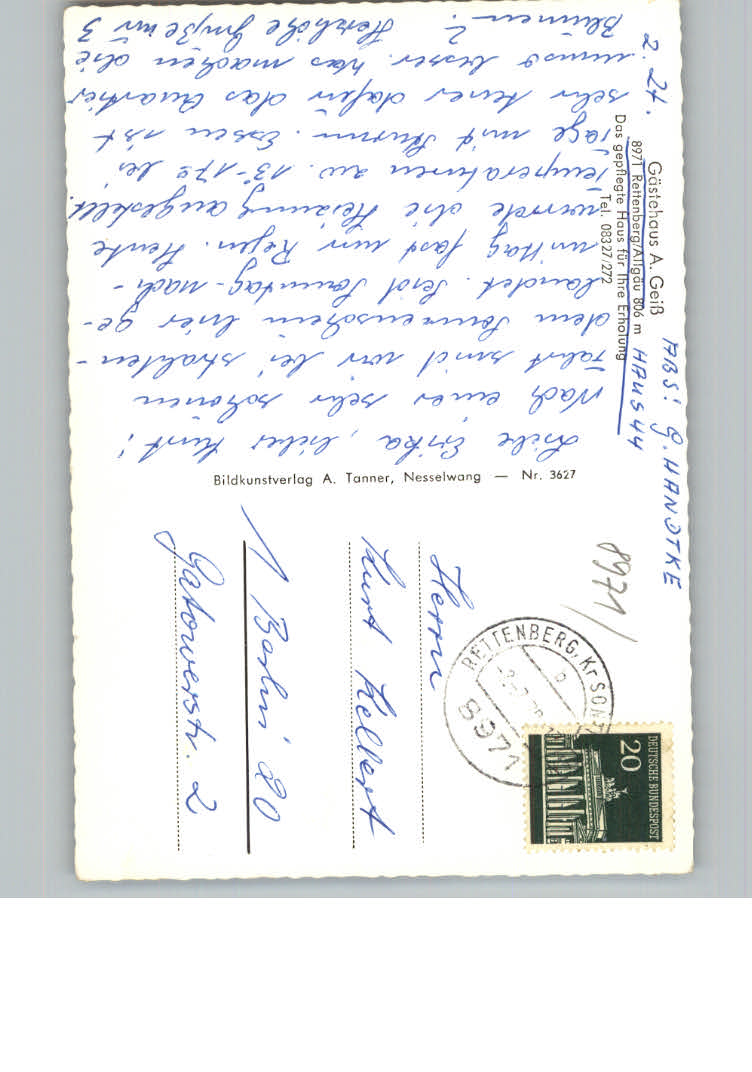 Gästehaus A. Geiß
8971 Rettenberg/Allgäu 806 m
Das gepflegte Haus für Ihre Erholung
Tel. 08327/272
ABS: G. HANDTKE
HAUS 44
Liebe Erika, lieber Kurt!
Nach einer sehr schönen
Fahrt sind wir bei strahlen-
dem Sonnenschein hier ge-
landet. Seid Sonntag-nach-
mittag fast nur Regen. Heute
wurde die Heizung angestellt.
Temperaturen zw. 13-17° bei
Tage mit Sturm. Essen ist
sehr teuer dafür das Quartier
umso besser. Was machen die
Blumen? Herzliche Grüße wir 3
2. 24.
Bildkunstverlag A. Tanner, Nesselwang — Nr. 3627
8971
RETTENBERG, Kr SONT
b
8971
DEUTSCHE BUNDESPOST
20
Herrn
Kurt Kelbert
1 Berlin 20
Gatowerstr. 2